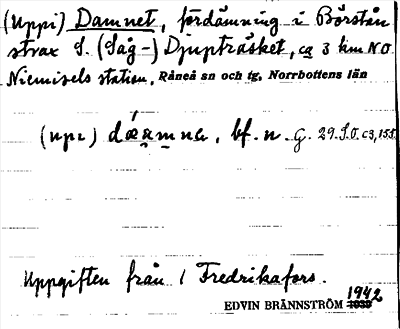 (Uppi) Damnet, fördämning i Börstån
strax S. (Såg-) Djupträsket, ca 3 km NO
Niemisels station, Råneå sn och tg, Norrbottens län
(upi) bf. n. G. 29. S.O. c3, 155.
Uppgiften från 1 Fredrikafors.
1942
EDVIN BRÄNNSTRÖM 1939